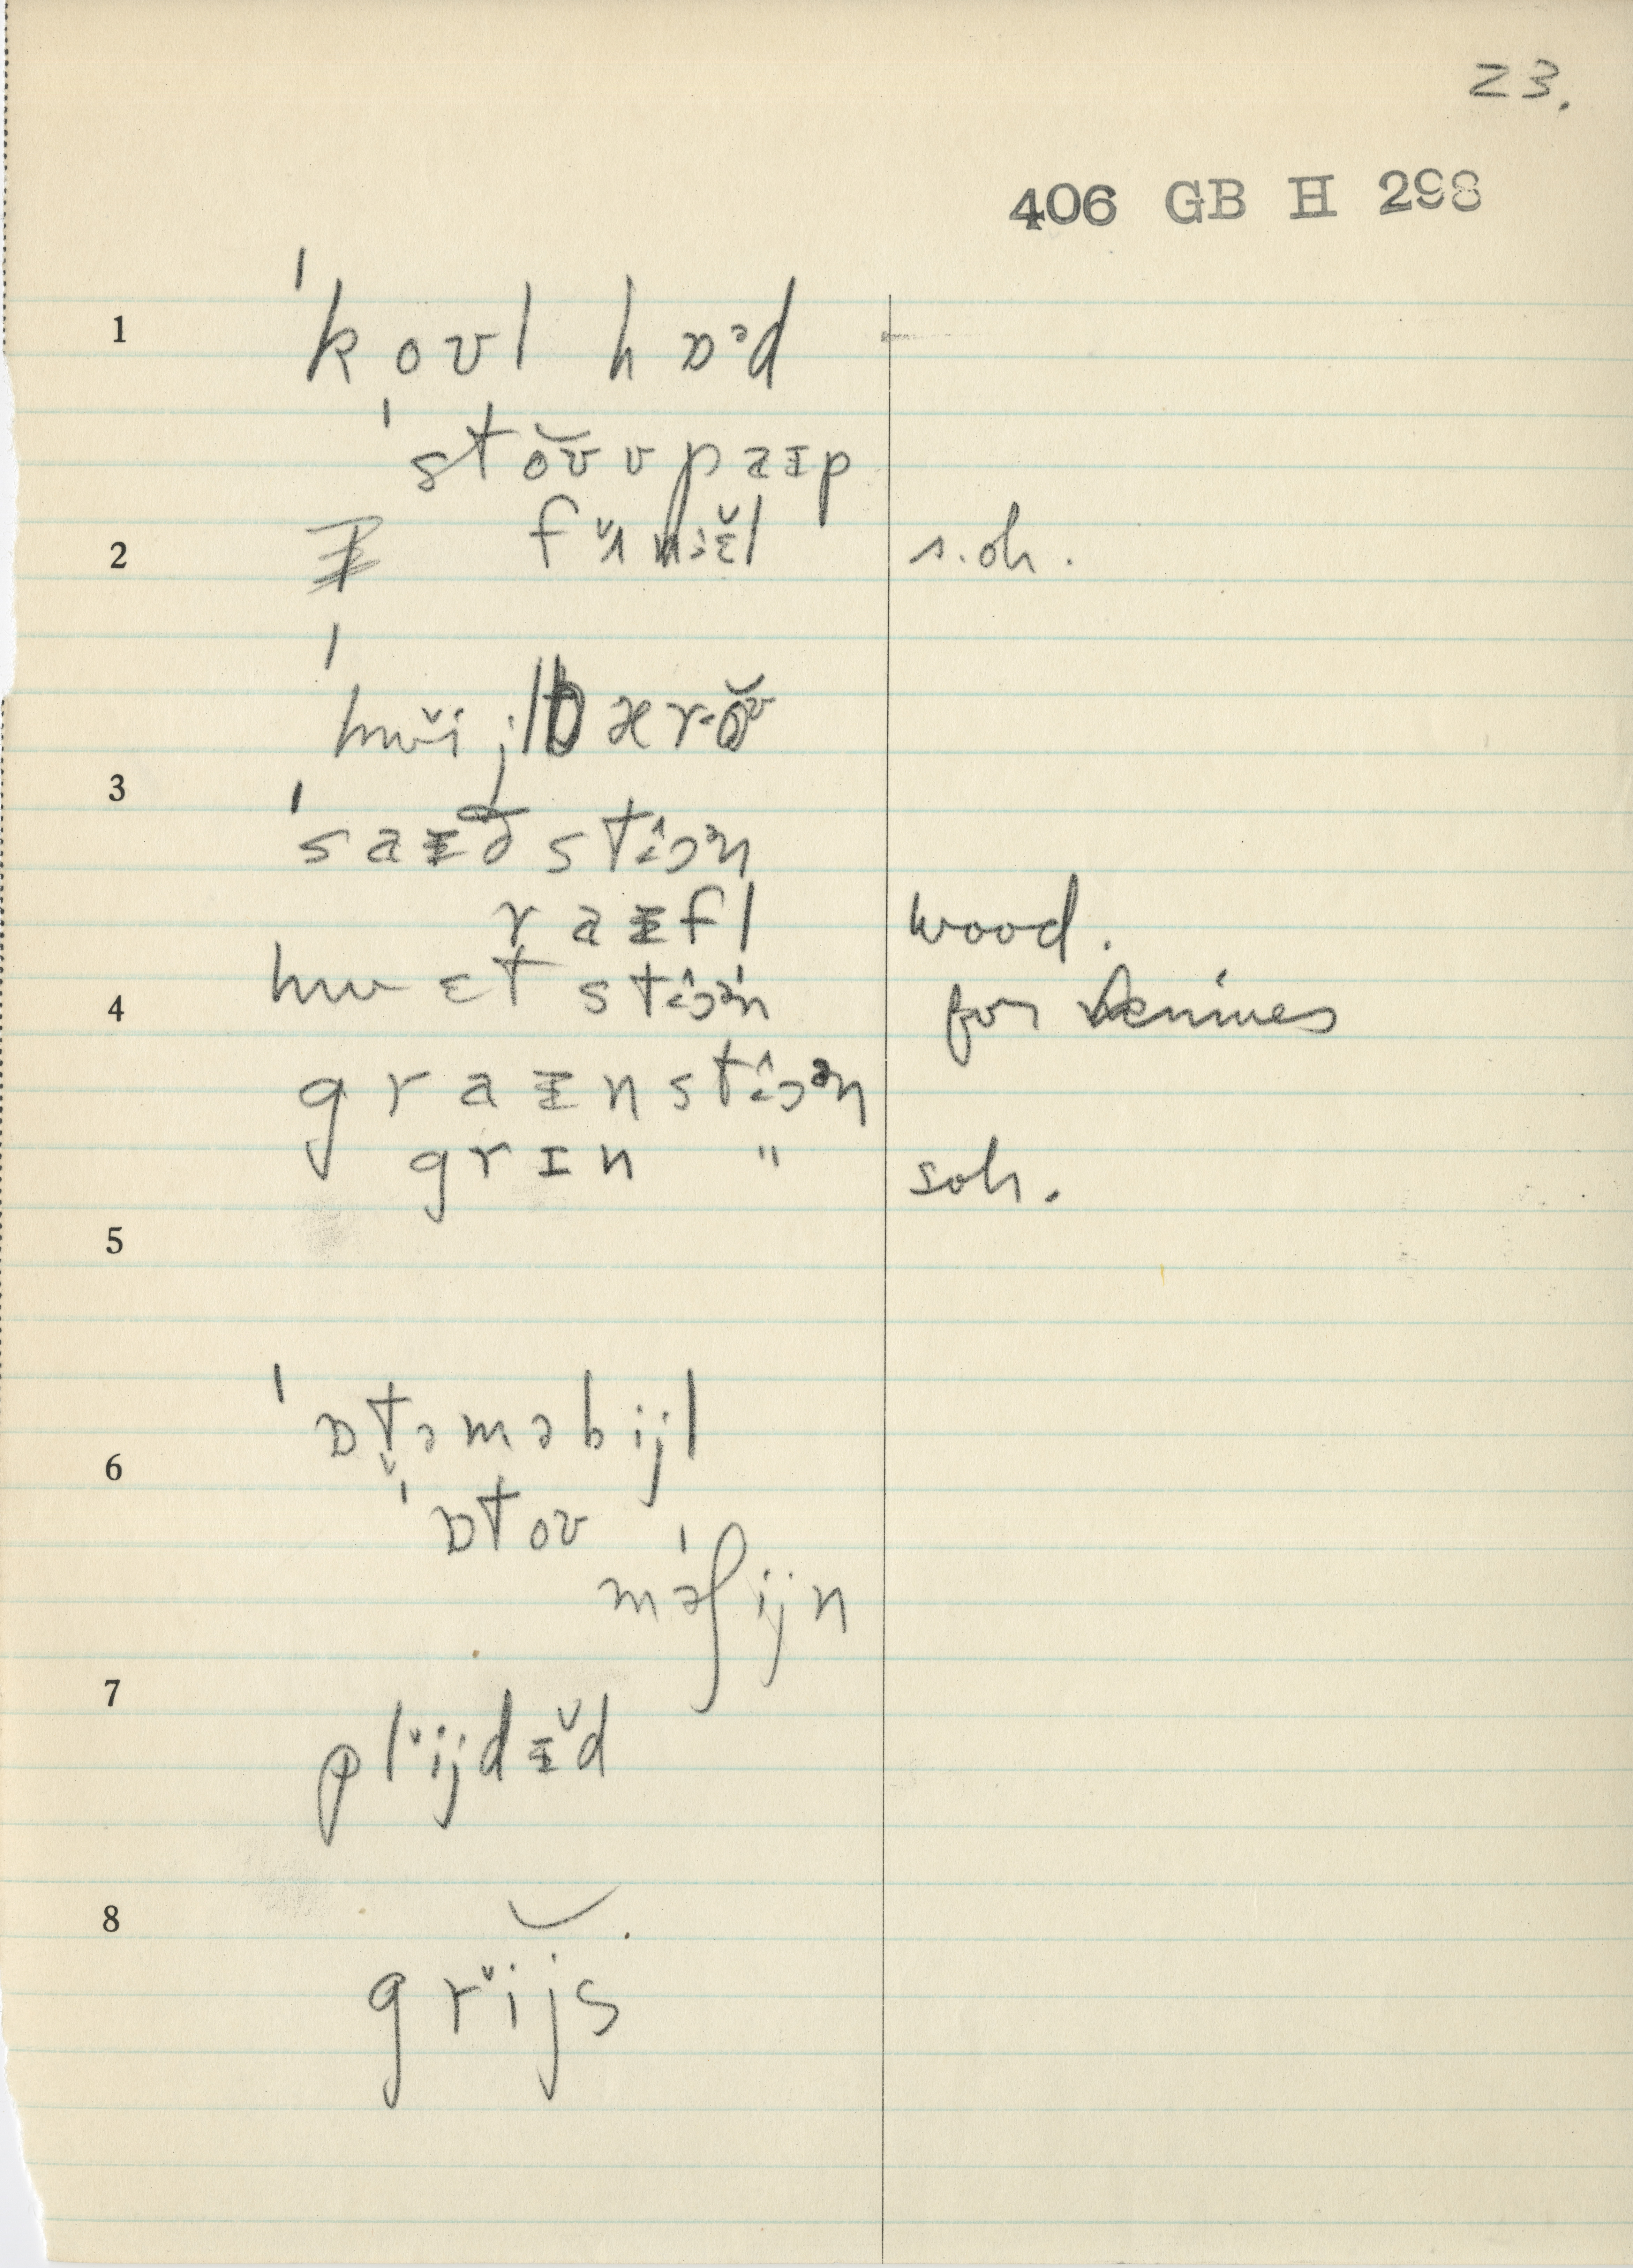 23.
406 GB H 298
1 ˈkoʊl hɒᵊd
ˈstoʊ̆ʊpaɪp
2 fʌ̌niɛ̆l s.oh.
ˈhwɪ̆ijlbær·oʊ̆
3 ˈsaɪðstɪɔᵊn
raɪfl wood.
4 hwɛtstɪɔᵊn for
graɪnstɪɔᵊn
grɪn " soh.
5
6 ˈɒt̬əməbijl
ˈɒtoʊ
məˈʃijn
7 plɪ̆ijdɪ̆d
8 grɪ̆ijs